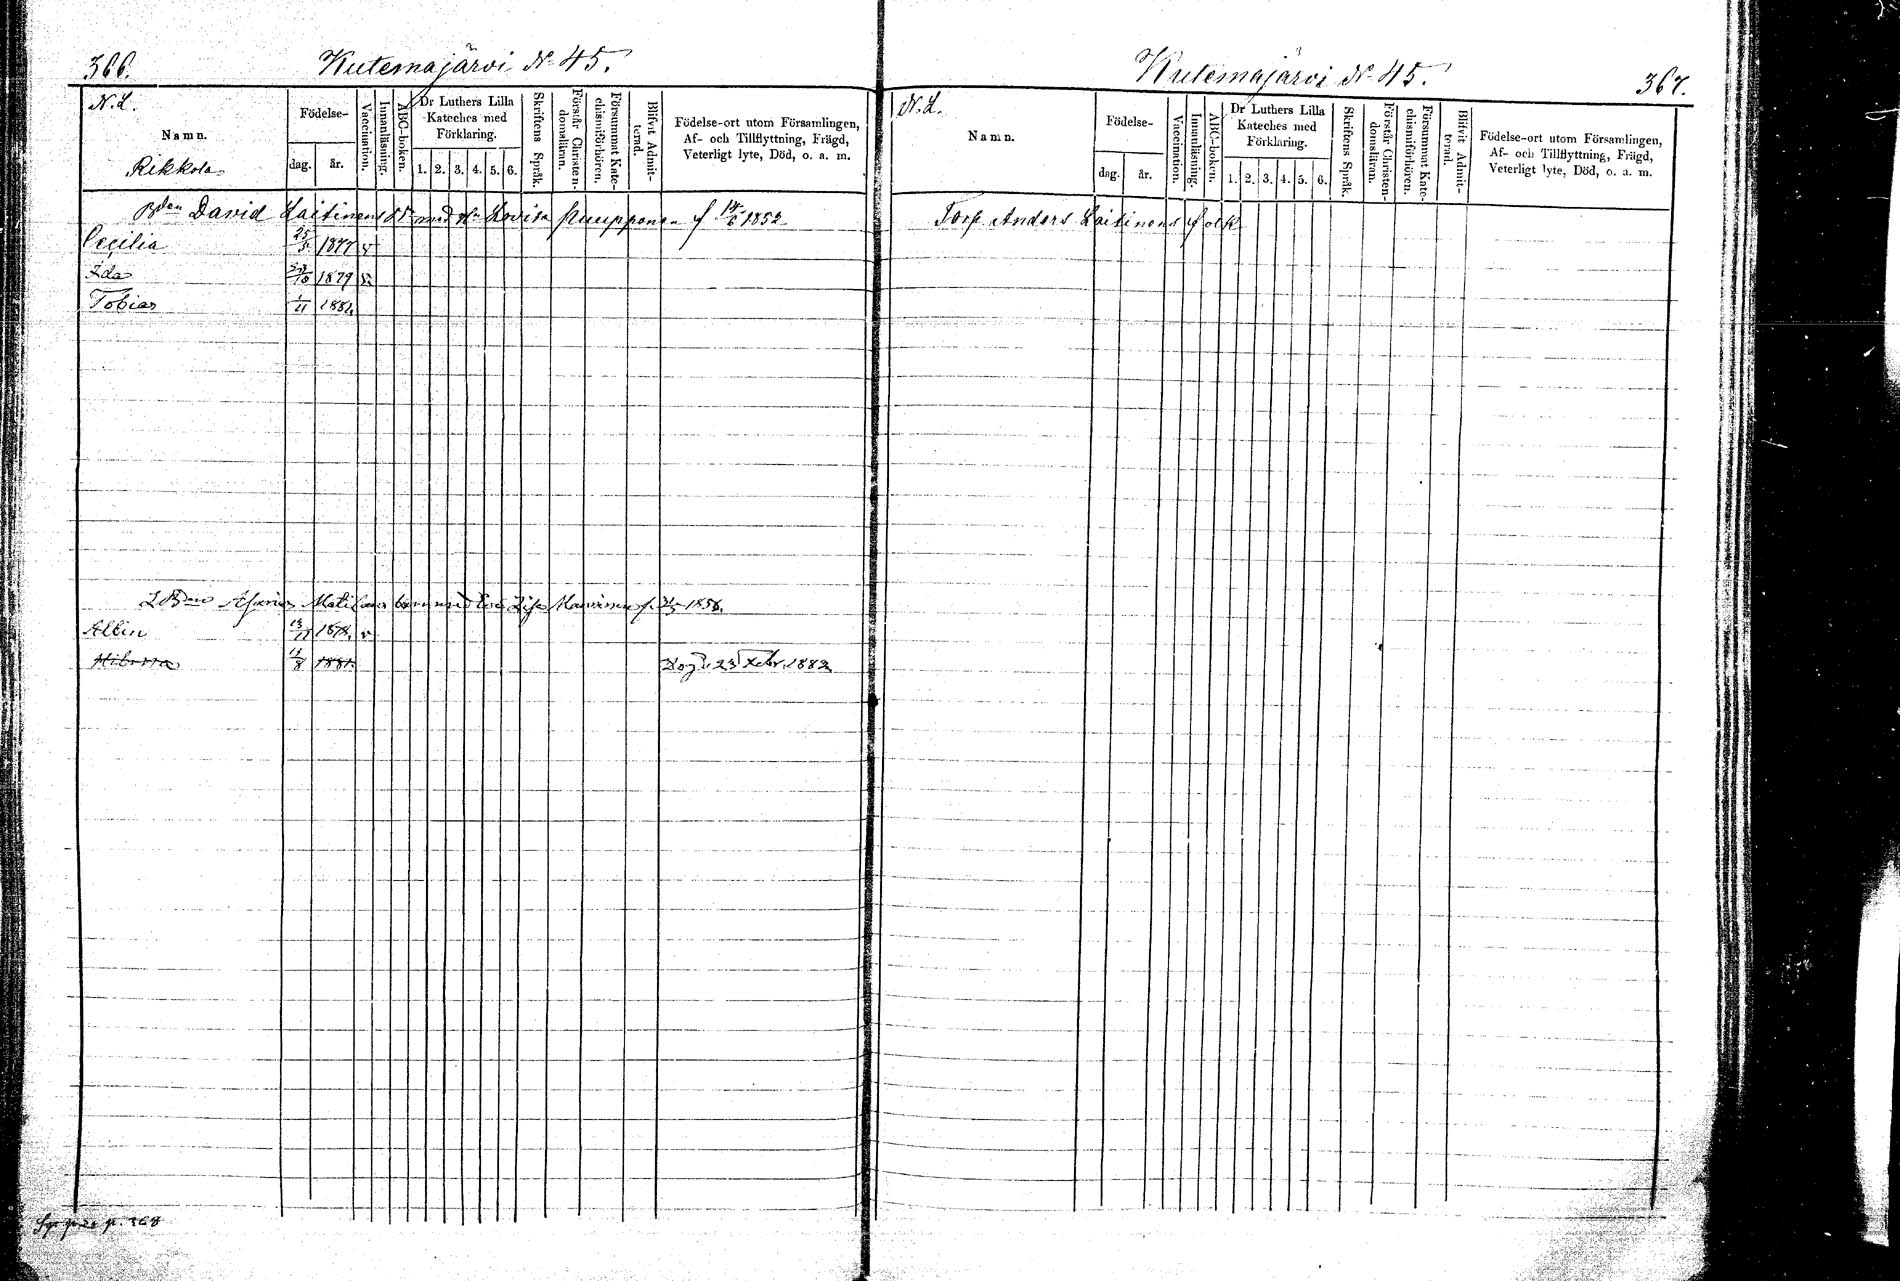 366.
Kutemajärvi No 45.
N. L.
Namn.
Rikkola
Födelse-
dag.
år.
Vaccination.
Innanläsning.
ABC-boken.
Dr Luthers Lilla
Kateches med
Förklaring.
1. 2. 3. 4. 5. 6.
Skriftens Språk.
Förstår Christen-
domsläran.
Försummat Kate-
chismiförhören.
Blifvit Admit-
terad.
Födelse-ort utom Församlingen,
Af- och Tillflyttning, Frägd,
Veterligt lyte, Död, o. a. m.
Bden David Laitinens med Lovisa Puupponen f 1852
Cecilia 25/5 1877 v
Ida 1879 v
Tobias 1/11 1882
Matilainens barn med Eva Lisa Manninen f. 1856.
Albin 1878. v
13/8 1881. Dog d. 23 Febr. 1882
p. 368
Kutemajärvi No 45.
367.
N. L.
Namn.
Födelse-
dag.
år.
Vaccination.
Innanläsning.
ABC-boken.
Dr Luthers Lilla
Kateches med
Förklaring.
1. 2. 3. 4. 5. 6.
Skriftens Språk.
Förstår Christen-
domsläran.
Försummat Kate-
chismiförhören.
Blifvit Admit-
terad.
Födelse-ort utom Församlingen,
Af- och Tillflyttning, Frägd,
Veterligt lyte, Död, o. a. m.
Torp. Anders Laitinens folk